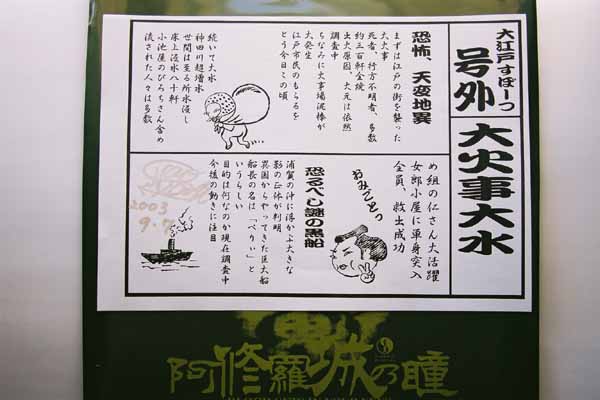 大江戸すぽーつ
号外
大火事大水
恐怖、天変地異
まずは江戸の街を襲った
大火事
死者、行方不明者、多数
約三百軒全焼
出火原因、火元は依然
調査中
ちなみに火事場泥棒が
大発生
江戸市民のもらるを
とう今日この頃
続いて大水
神田川超増水
世間は至る所水浸し
床上浸水八十軒
小池屋のぴろちさん含め
流された人々は多数
め組の仁さん大活躍
女郎小屋に単身突入
全員、救出成功
おみごとっ
恐るべし謎の黒船
浦賀の沖に浮かぶ大きな
影の正体が判明
異国からやってきた巨大船
船長の名は、「ぺりぃ」と
いうらしい
目的は何なのか現在調査中
今後の動きに注目
2003
9.7
阿修羅城の瞳